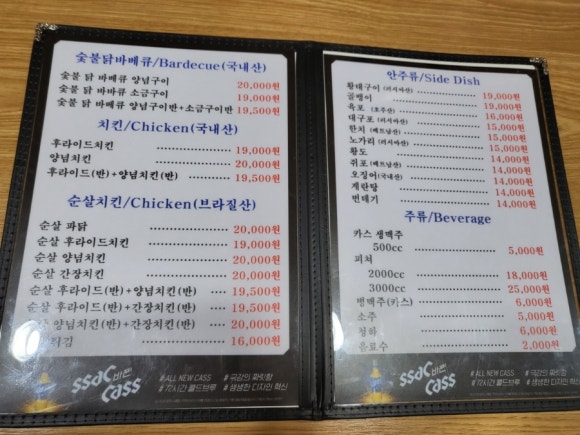 숯불닭바베큐/Bardecue(국내산)
숯불 닭 바베큐 양념구이 20,000원
숯불 닭 바바큐 소금구이 19,000원
숯불 닭 바베큐 양념구이반+소금구이반 19,500원
치킨/Chicken(국내산)
후라이드치킨 19,000원
양념치킨 20,000원
후라이드(반)+양념치킨(반) 19,500원
순살치킨/Chicken(브라질산)
순살 파닭 20,000원
순살 후라이드치킨 19,000원
순살 양념치킨 20,000원
순살 간장치킨 20,000원
순살 후라이드(반)+양념치킨(반) 19,500원
순살 후라이드(반)+간장치킨(반) 19,500원
순살 양념치킨(반)+간장치킨(반) 20,000원
튀김 16,000원
ssac 바쁜 cass
# ALL NEW CASS # 극강의 짜릿함
# 72시간 콜드브루 # 생생한 디자인 혁신
안주류/Side Dish
황태구이(러시아산) 19,000원
골뱅이 19,000원
육포 (호주산) 16,000원
대구포(러시아산) 15,000원
한치(베트남산) 15,000원
노가리(러시아산) 15,000원
황도 14,000원
쥐포(베트남산) 14,000원
오징어(국내산) 14,000원
계란탕 14,000원
번데기 14,000원
주류/Beverage
카스 생맥주
500cc 5,000원
피쳐
2000cc 18,000원
3000cc 25,000원
병맥주(카스) 6,000원
소주 5,000원
청하 6,000원
음료수 2,000원
ssac
cass
# ALL NEW CASS # 극강의 짜릿함
# 72시간 콜드브루 # 생생한 디자인 혁신